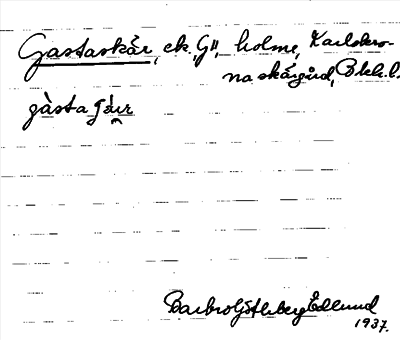 Gastaskär, ek. "G", holme, Karlskro-
na skärgård, Blek.l.
gàsta
Barbro Göthberg Edlund
1937.